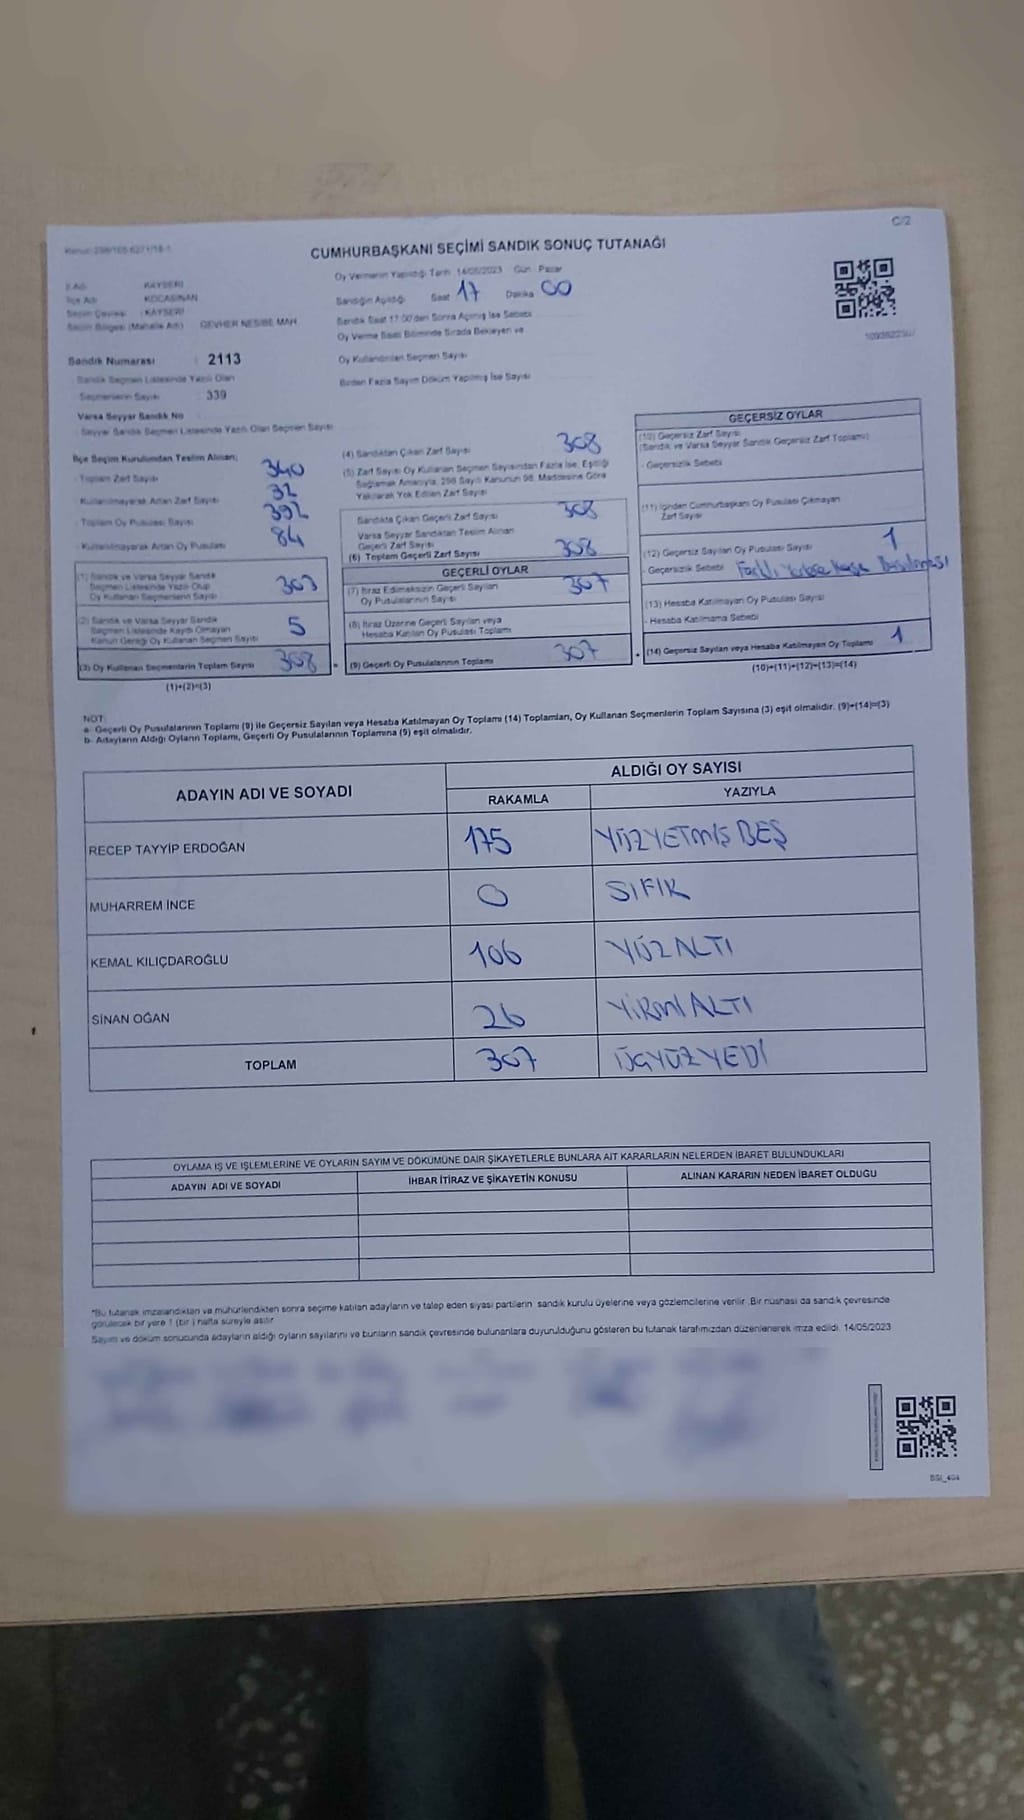 C/2
CUMHURBAŞKANI SEÇİMİ SANDIK SONUÇ TUTANAĞI
Oy Vermenin Yapıldığı Tarih 14/05/2023 Gün Pazar
İl Adı KAYSERİ
İlçe Adı KOCASİNAN
Seçim Çevresi : KAYSERİ
Seçim Bölgesi (Mahalle Adı) GEVHER NESİBE MAH
Sandığın Açıldığı Saat 17 Dakika 00
Sandık Saat 17:00'den Sonra Açılmış İse Sebebi
Oy Verme Saati Bitiminde Sırada Bekleyen ve
Oy Kullandırılan Seçmen Sayısı
Birden Fazla Sayım Döküm Yapılmış İse Sayısı
Sandık Numarası : 2113
Sandık Seçmen Listesinde Yazılı Olan
Seçmenlerin Sayısı : 339
Varsa Seyyar Sandık No
Seyyar Sandık Seçmen Listesinde Yazılı Olan Seçmen Sayısı
İlçe Seçim Kurulundan Teslim Alınan;
- Toplam Zarf Sayısı 340
- Kullanılmayarak Artan Zarf Sayısı 32
- Toplam Oy Pusulası Sayısı 392
- Kullanılmayarak Artan Oy Pusulası 84
(1) Sandık ve Varsa Seyyar Sandık
Seçmen Listesinde Yazılı Olup
Oy Kullanan Seçmenlerin Sayısı 303
(2) Sandık ve Varsa Seyyar Sandık
Seçmen Listesinde Kaydı Olmayan
Kanun Gereği Oy Kullanan Seçmen Sayısı 5
(3) Oy Kullanan Seçmenlerin Toplam Sayısı 308
(1)+(2)=(3)
(4) Sandıktan Çıkan Zarf Sayısı 308
(5) Zarf Sayısı Oy Kullanan Seçmen Sayısından Fazla İse, Eşitliği
Sağlamak Amacıyla, 298 Sayılı Kanunun 98. Maddesine Göre
Yakılarak Yok Edilen Zarf Sayısı
Sandıkta Çıkan Geçerli Zarf Sayısı 308
Varsa Seyyar Sandıktan Teslim Alınan
Geçerli Zarf Sayısı
(6) Toplam Geçerli Zarf Sayısı 308
GEÇERLİ OYLAR
(7) İtiraz Edilmeksizin Geçerli Sayılan
Oy Pusulalarının Sayısı 307
(8) İtiraz Üzerine Geçerli Sayılan veya
Hesaba Katılan Oy Pusulası Toplamı
= (9) Geçerli Oy Pusulalarının Toplamı 307
GEÇERSİZ OYLAR
(10) Geçersiz Zarf Sayısı
(Sandık ve Varsa Seyyar Sandık Geçersiz Zarf Toplamı)
- Geçersizlik Sebebi
(11) İçinden Cumhurbaşkanı Oy Pusulası Çıkmayan
Zarf Sayısı
(12) Geçersiz Sayılan Oy Pusulası Sayısı 1
- Geçersizlik Sebebi Farklı
(13) Hesaba Katılmayan Oy Pusulası Sayısı
- Hesaba Katılmama Sebebi
+ (14) Geçersiz Sayılan veya Hesaba Katılmayan Oy Toplamı 1
(10)+(11)+(12)+(13)=(14)
NOT:
a- Geçerli Oy Pusulalarının Toplamı (9) ile Geçersiz Sayılan veya Hesaba Katılmayan Oy Toplamı (14) Toplamları, Oy Kullanan Seçmenlerin Toplam Sayısına (3) eşit olmalıdır. (9)+(14)=(3)
b- Adayların Aldığı Oyların Toplamı, Geçerli Oy Pusulalarının Toplamına (9) eşit olmalıdır.
ADAYIN ADI VE SOYADI ALDIĞI OY SAYISI
RAKAMLA YAZIYLA
RECEP TAYYİP ERDOĞAN 175 YÜZYETMİŞ BEŞ
MUHARREM İNCE 0 SIFIR
KEMAL KILIÇDAROĞLU 106 YÜZALTI
SİNAN OĞAN 26 YİRMİALTI
TOPLAM 307 ÜÇYÜZYEDİ
OYLAMA İŞ VE İŞLEMLERİNE VE OYLARIN SAYIM VE DÖKÜMÜNE DAİR ŞİKAYETLERLE BUNLARA AİT KARARLARIN NELERDEN İBARET BULUNDUKLARI
ADAYIN ADI VE SOYADI İHBAR İTİRAZ VE ŞİKAYETİN KONUSU ALINAN KARARIN NEDEN İBARET OLDUĞU
*Bu tutanak imzalandıktan ve mühürlendikten sonra seçime katılan adayların ve talep eden siyasi partilerin sandık kurulu üyelerine veya gözlemcilerine verilir. Bir nüshası da sandık çevresinde
görülecek bir yere 1 (bir) hafta süreyle asılır
Sayım ve döküm sonucunda adayların aldığı oyların sayılarını ve bunların sandık çevresinde bulunanlara duyurulduğunu gösteren bu tutanak tarafımızdan düzenlenerek imza edildi. 14/05/2023